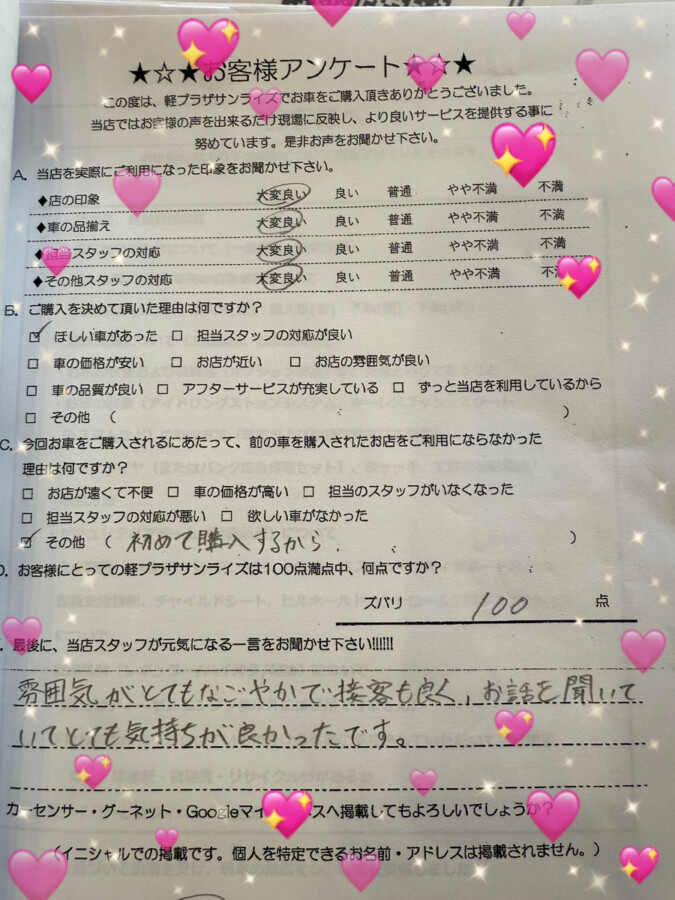 ★☆★お客様アンケート★☆★
この度は、軽プラザサンライズでお車をご購入頂きありがとうございました。
当店ではお客様の声を出来るだけ現場に反映し、より良いサービスを提供する事に
努めています。是非お声をお聞かせ下さい。
A. 当店を実際にご利用になった印象をお聞かせ下さい。
◆店の印象 大変良い 良い 普通 やや不満 不満
◆車の品揃え 大変良い 良い 普通 やや不満 不満
◆担当スタッフの対応 大変良い 良い 普通 やや不満 不満
◆その他スタッフの対応 大変良い 良い 普通 やや不満 不
B. ご購入を決めて頂いた理由は何ですか？
☑ ほしい車があった □ 担当スタッフの対応が良い
□ 車の価格が安い □ お店が近い □ お店の雰囲気が良い
□ 車の品質が良い □ アフターサービスが充実している □ ずっと当店を利用しているから
□ その他 （ ）
C. 今回お車をご購入されるにあたって、前の車を購入されたお店をご利用にならなかった
理由は何ですか？
□ お店が遠くて不便 □ 車の価格が高い □ 担当のスタッフがいなくなった
□ 担当スタッフの対応が悪い □ 欲しい車がなかった
☑ その他 （ 初めて購入するから. ）
D. お客様にとっての軽プラザサンライズは100点満点中、何点ですか？
ズバリ 100 点
最後に、当店スタッフが元気になる一言をお聞かせ下さい!!!!!!
雰囲気がとてもなごやかで接客も良く、お話を聞いて
いてとても気持ちが良かったです。
カーセンサー・グーネット・Googleマイ ネスへ掲載してもよろしいでしょうか？
（イニシャルでの掲載です。個人を特定できるお名前・アドレスは掲載されません。）